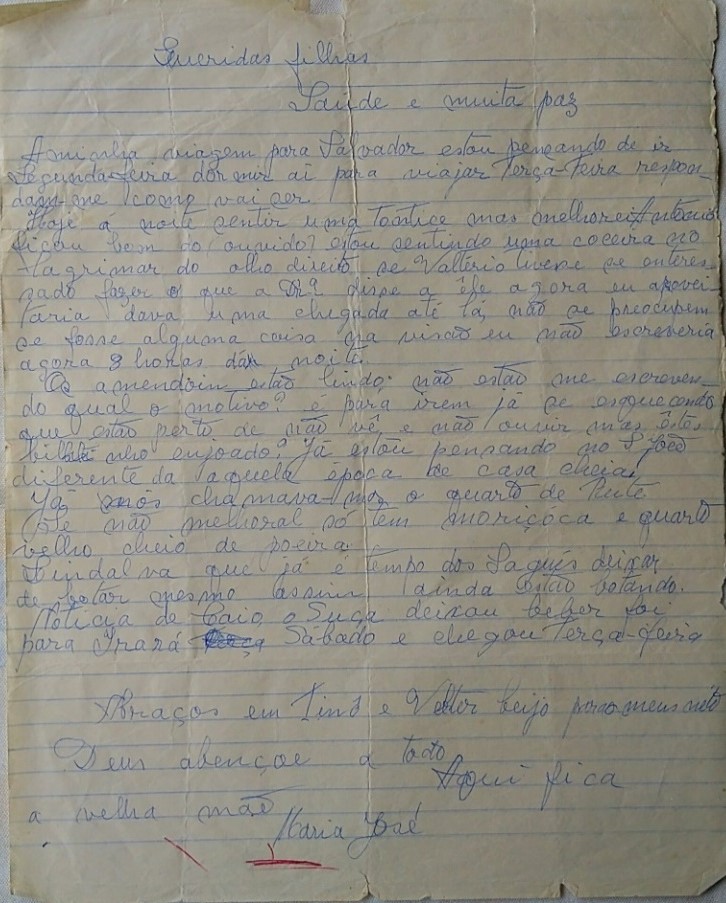 Queridas filhas
Saude e muita paz
A minha viagem para Salvador estou pençando de ir
Segunda-feira dormir ai para viajar Terça-feira respon-
dam-me como vai ser.
Hoje á noite sentir uma tontice mas melhorei Antonio
ficou bom do ouvido? estou sentindo uma coceira no
lagrimar do olho direito se Valtério tivese se enteres
sado fazer o que a Drª disse a ele agora eu aprovei
taria dava uma chegada até lá, não se preocupem
se fosse alguma coisa na visão eu não escreveria
agora 8 horas da noite.
Os amendoin estão lindo; não estão me escreven-
do qual o motivo? é para irem já se esquecendo
que estão perto de não vê, e não ouvir mas estes
bilhetinho enjoado? Já estou pensando no S João
diferente da aquela época de casa cheia,
Já nós chamava-mos o quarto de Rute
não melhoral só tem moriçóca e quarto
velho cheio de poeira
Lindalva que já e tempo dos Saguis deixar
de botar mesmo assim ainda estão botando.
Noticia de Caio, o Suga deixou beber foi
para Irará Sábado e chegou Terça-feira
Abraços em Tino e Valter beijo para meus neto
Deus abençoe a todo
Aqui fica
a velha mãe
Maria José